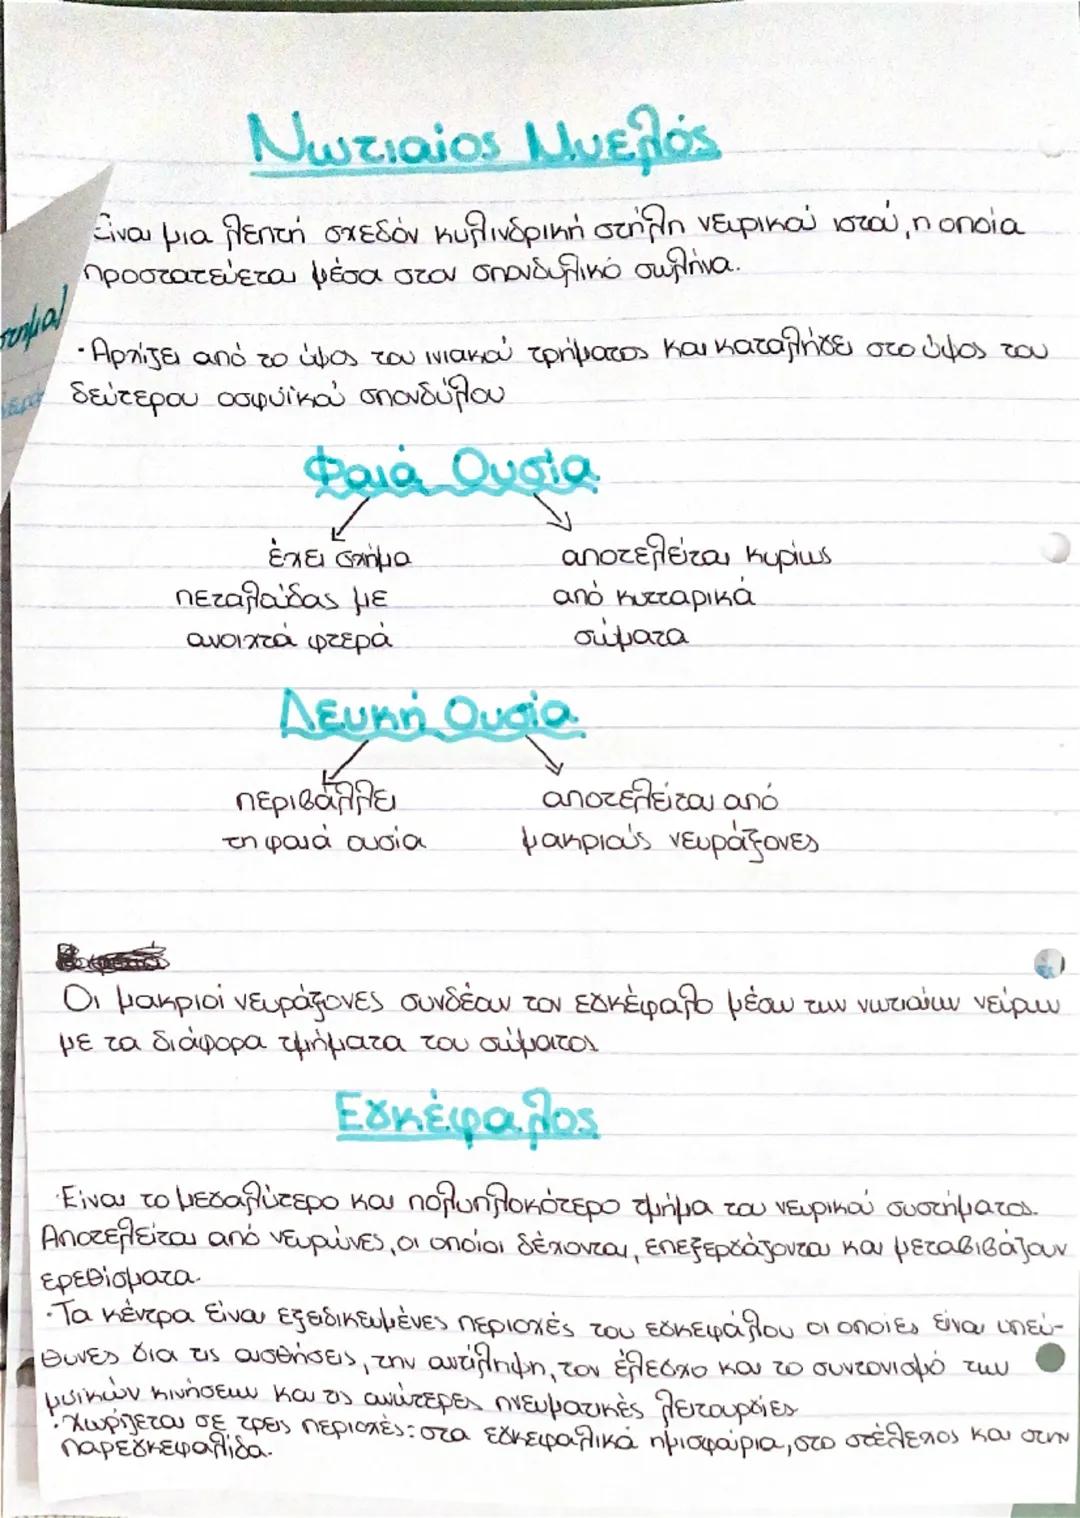 Νωτιαίος Μυελός
Είναι μια λεπτή σχεδόν κυλινδρική στήλη νευρικού ιστού, η οποία
προστατεύεται μέσα στον σπονδυλικό σωλήνα.
·Αρχίζει από το ύψος του ινιακού τρήματος και καταλήγει στο ύψος του
δεύτερου οσφυϊκού σπονδύλου
Φαιά Ουσία
έχει σχήμα αποτελείται κυρίως
πεταλούδας με από κυτταρικά
ανοιχτά φτερά σώματα
Λευκή Ουσία
περιβάλλει αποτελείται από
τη φαιά ουσία μακριούς νευράξονες
Οι μακριοί νευράξονες συνδέουν τον εγκέφαλο μέσω των νωτιαίων νεύρων
με τα διάφορα τμήματα του σώματος
Εγκέφαλος
·Είναι το μεγαλύτερο και πολυπλοκότερο τμήμα του νευρικού συστήματος.
Αποτελείται από νευρώνες, οι οποίοι δέχονται, επεξεργάζονται και μεταβιβάζουν
ερεθίσματα.
·Τα κέντρα είναι εξειδικευμένες περιοχές του εγκεφάλου οι οποίες είναι υπεύ-
θυνες για τις αισθήσεις, την αντίληψη, τον έλεγχο και το συντονισμό των
μυϊκών κινήσεων και τις ανώτερες πνευματικές λειτουργίες
·Χωρίζεται σε τρεις περιοχές: στα εγκεφαλικά ημισφαίρια, στο στέλεχος και στην
παρεγκεφαλίδα.